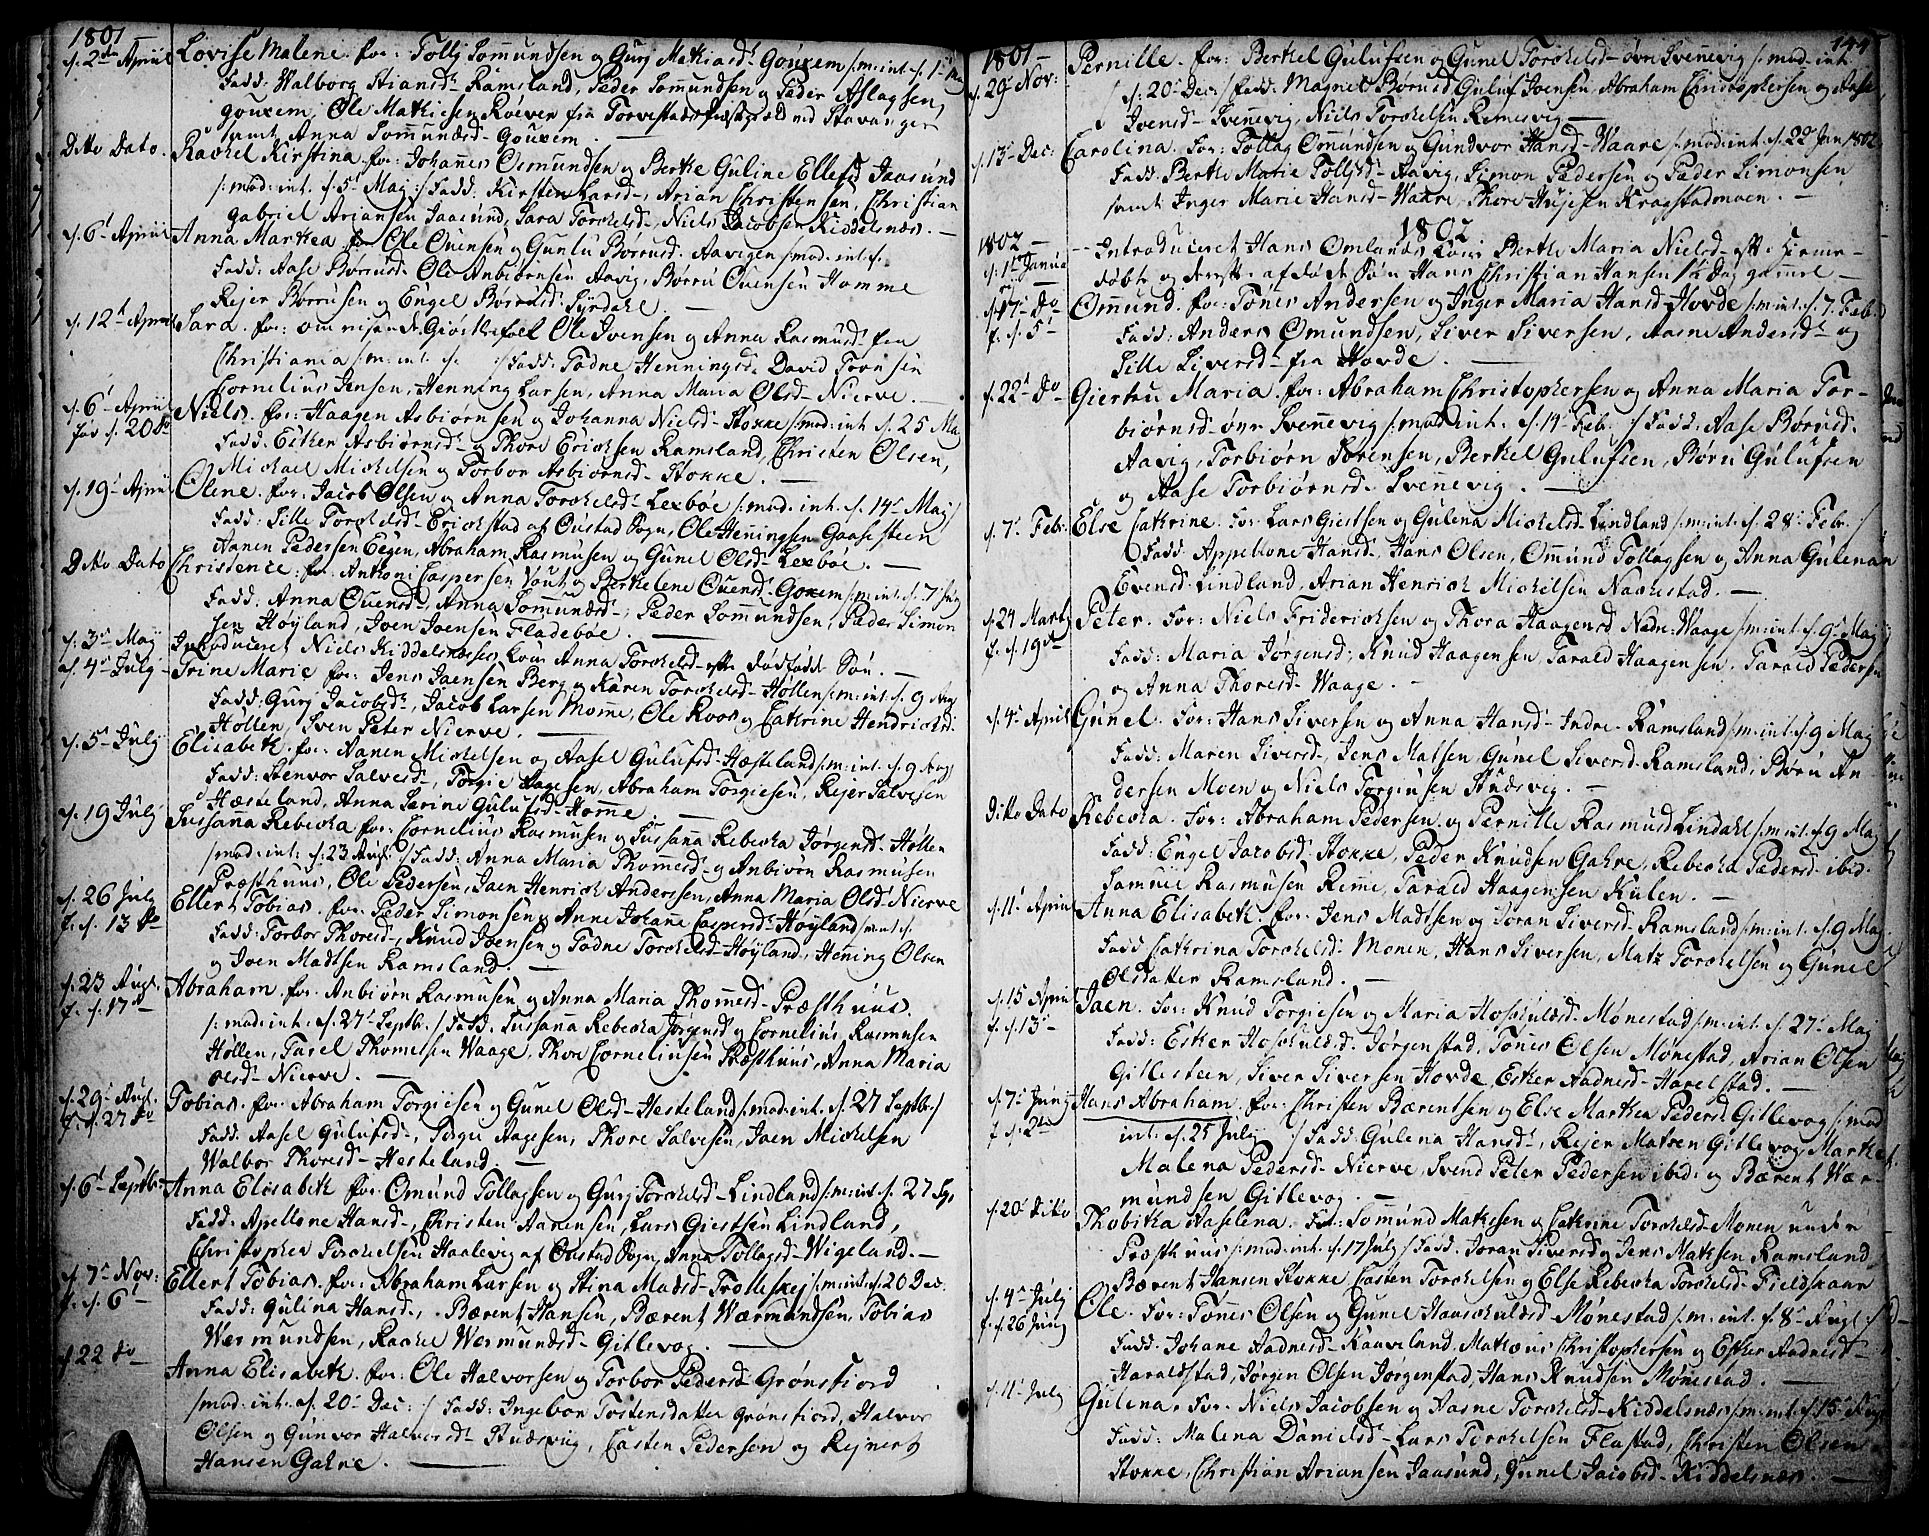 1801
d. 2den April Lovise Malene. for: Tollj Sommundsen og Gurj Mathiasd. Gouxem /:m: int. d. 1
Fadd: Walborg Stiansd. Ramsland, Peder Sommundsen og Peder Aslagsen
gouxem, Ole Mathiesen Roever fra ved Stavanger
samt Anna Sommundsd. Gouxem.
Ditto Dato. Rachel Kirstina. for: Johannes Osmundsen og Berthe Guline Ellefsd. Jaasund
/:mod: int. d. 5t Maj :/ Fadd: Kirsten Larsd., Arian Christensen, Christian
Gabriel Ariansen Jaasund, Sara Torchelsd., Niels Jacobsen Kiddelsnæs.
d. 6t April Anna Marthea for Ole Ouensen og Gunlu Børrusd. Aavigen /:mod: int. d.
Fadd: Aase Børrusd. Ole Anbiørnsen Aavig, Børru Ouensen Homme
Rejer Børrusen og Engel Børrusd. Syrdahl.
d. 12t April Sara. for: om reisende Giørtlerfolk Ole Ivensen og Anna Rasmusd. fra
Christiania /:m: int. d. :/ Fadd: Tadne Henningsd. David Torsen
Cornelius Jensen, Henning Larsen, Anna Maria Olsd. Nierve.
d. 6t April Niels. for: Haagen Asbiørnsen og Johanna Nielsd. Stokke /:mod: int d. 25 Maj
d. 20 do
Fadd: Esther Asbiørnsd. og Thore Erichsen Ramsland, Christen Olsen,
Michael Michelsen og Torbor Asbiørnsd. Stokke.
d. 19t April Olene. for: Jacob Olsen og Anna Torchelsd. Lexbøe /:mod: int. d. 14t Maj /
Fadd: Sille Torchelsd. Erichstad af Oustad Sogn, Ole Henningsen Gaasesteen
Aanen Pedersen Eegen, Abraham Rasmusen og Gunel Olsd. Lexbøe.
Ditto Dato Christence: for Anthoni Caspersen Vout og Berthe Lene Ouensd. Goxem /:m: int. d. 7 Jun
Fadd: Anna Ouensd., Anna Sommundsd., Peder Sommundsen, Peder Simon
sen Høyland, Joen Joensen Fladebøe.
d. 3t Maj Introduceret Niels Kiddelsnæses kone Anna Torchelsd. efter dødfødt Søn.
d. 4t Julj Trine Marie for: Jens Jaensen Berg og Karen Torchelsd. Høllen /:m: int. d. 9 Aug
Fadd: Gurj Jacobsd., Jacob Larsen Momme, Ole Roos og Cathrine Hendrichsd.
Høllen, Sven Peter Nierve.
d. 5t Julj Elisabeth. for: Aanen Michelsen og Aasel Gulufsd. Hæsteland /:m: int. d. 9 Aug
Fadd: Steenvor Salvesd., Torgie Aagesen, Abraham Torgiesen, Rejer Salvesen
Hæsteland, Anna Serine Gulufsd. Homme
d. 19 Julj Sussana Rebecka for: Cornelius Rasmusen og Sussana Rebecka Jørgensd. Høllen
/mod: int: d. 23 Aug. / Fadd: Anna Maria Thommesd. og Anbiørn Rasmusen
Præsthuus, Ole Pedersen, Jaen Henrich Anderssen, Anna Maria Olsd. Nierve
d. 26 Julj Ellert Tobias. for: Peder Simonsen og Anne Johanne Caspersd. Høyland /:m: int d.
f. d. 13 do
Fadd: Torbor Thoresd., Knud Joensen og Tadne Torchelsd. Høyland, Hening Olsen
og Joen Madtsen Ramsland.
d. 23 Aug. Abraham. for. Anbiørn Rasmusen og Anna Maria Thommesd. Præsthuus.
f. d. 17
/:mod: int: d. 27t Septbr. / Fadd: Sussana Rebecka Jørgensd. og Cornelius Rasmusen
Høllen, Tarel Thomesen Waage, Thore Corneliusen Præsthuus, Anna Maria
Olsd. Nierve.
d. 29t Aug. Tobias. for: Abraham Torgiesen og Gunel Olsd. Hesteland /:mod: int. d. 27 Septbr. /
f. d. 27 do
Fadd: Aasel Gulufsd., Torgie Aagesen, Thore Salvesen, Jaen Michelsen
Walbor Thoresd. Hesteland.
d. 6t Septbr. Anna Elisabeth for: Omund Tollagsen og Gurj Torchelsd. Lindland /:m: int d. 27
Fadd: Apellone Hansd., Christen Aanensen, Lars Giertsen Lindland,
Christopher Torchelsen Haalevig af Oustad Sogn, Anna Tollagsd. Wigeland.
d. 7t Nov: Ellert Tobias. for: Abraham Larsen og Stina Madsd. Trolleskej /:m: int: d. 20 Dec.
f. d. 6t
Fadd: Gulina Hansd., Bærent Hansen, Bærent Wærmundsen, Tobias
Wermundsen, Rachel Wermundsd. Gitlevog.
d. 22 do Anna Elisabeth. for: Ole Halvorsen og Torbor Pedersd. Grønsfiord
/mod: int. d. 20t Dec: / Fadd: Ingebor Tostensdatter Grønsfiord, Halvor
Olsen og Gunvor Halvorsd. Stuesvig, Casten Pedersen og Rejnert
Hansen Gahre.
144
1801
d. 29 Nov: Pernille. for: Berthel Gulufsen og Gunel Torchelsd. øvre Svennevig /:mod: int
/ d. 20t Dec. / Fadd: Magnil Børusd. Guluf Joensen, Abraham Christophersen og Aase
Ivensd. Svennevig, Niels Torchelsen Remesvig
d. 13t Dec: Carolina. for: Tollag Ommundsen og Gundvor Hansd. Waare /:mod: int d. 22 Jan 1802
Fadd: Berthe Marie Tolljsd. Aavig, Simon Pedersen og Peder Simonsen
samt Inger Marie Hansd. Waare, Thore Kragstadmoen.
1802
1802
d. 1te Januar Introduceret Hans Omlands kone Berthe Maria Nielsd. efter hiemme-
døbt og derefter afdøde Søn Hans Christian Hansen Dage gammel
d. 17t do Ommund. for: Tønes Andersen og Inger Maria Hansd. Hovde /:m: int. d. 7 Feb
f. d. 5t
Fadd: Anders Omundsen, Siver Siversen, Aasne Andersd. og
Sille Siversd. fra Hovde.
d. 22t do Gierthu Maria. for: Abraham Christophersen og Anna Maria Tor-
biørnsd. øvre Svennevig /:mod: int. d. 14t Feb. :/ Fadd: Aase Børusd.
Aavig, Torbiørn Sørensen, Berthel Gulufsen, Børu Gulufsen
og Aase Torbiørnsd. Svenevig.
d. 7t Febr: Else Cathrine. for: Lars Giertsen og Gulena Michelsd. Lindland /:m: int. d. 28t Febr. /
Fadd: Appellone Hansd. Hans Olsen, Ommund Tollagsen og Anna Gulena
Evensd. Lindland, Arian Henrich Michelsen Naudestad.
d. 24 Marty Peter. for: Niels Friderichsen og Thora Haagensd. Nedre Waage /:m: int. d. 9t Maj
f. d. 19de
Fadd: Maria Jørgensd., Knud Haagensen, Tarald Haagensen, Tarald Pedersen
og Anna Thoresd. Waage.
d. 4t April Gunel. for: Hans Siversen og Anna Hansd. Indre Ramsland /:m: int. d. 9 Maj
Fadd: Maren Siversd., Jens Matsen, Gunel Siversd. Ramsland, Børu An-
dersen Moen og Niels Torgiusen Studsvig.
Ditto Dato Rebecka. for: Abraham Pedersen og Pernille Rasmusd. Lindahl /:m: int. d. 9 Maj
Fadd: Engel Jacobsd. Stokke, Peder Knudsen Gahre, Rebecka Pedersd. ibid.
Samuel Rasmusen Remme, Tarald Haagensen Kulen.
d. 11t April Anna Elisabeth. for. Jens Madtsen og Joran Siversd. Ramsland /:m: int. d. 9 Maj
Fadd Cathrina Torchelsd. Monen, Hans Siversen, Matz Torchelsen og Gunel
Olsdatter Ramsland.
d. 15 April Jaen. for: Knud Torgiesen og Maria Hoskuldsd. Mønestad /:m: int. d. 27t Maj
f. d. 13t
Fadd: Esther Hoskuldsd. Jørgenstad, Tønes Olsen Mønestad, Arian Olsen
Gillesteen, Siver Siversen Hovde, Esther Aadnesd. Harelstad.
d. 7t Junj Hans Abraham. for: Christen Bærentsen og Else Marthea Pedersd. Gitlevog /:mod
f. d. 2de
int: d. 25 Julij / Fadd: Gulena Hansd., Rejer Matsen Gitlevog, Marthe
Malena Pedersd. Nierve, Svend Peter Pedersen ibid. og Bærent Wær-
mundsen Gitlevog.
d. 20 Ditto Thobitha Aaselena. for: Sommund Matssen og Cathrine Torchelsd. Monen under
Præsthuus /:mod: int. d. 17 Julj / Fadd: Joran Siversd. og Jens Matssen Ramsland
Bærent Hansen Stokke, Casten Torchelsen og Else Rebecka Torchelsd. Fieldskaar
d. 4t Julj Ole. for: Tønes Olsen og Gunel Haaschuldsd. Mønestad /:m: int. d. 8t Aug. :/
f. d. 26 Junj
Fadd: Johane Aadnesd. Raaveland, Mathæus Christophersen og Esther Aadnesd.
Haraldstad, Jørgen Olsen Jørgenstad, Hans Knudsen Mønestad.
d. 11t Julj Gulena. for: Niels Jacobsen og Aasne Torchelsd. Kiddelsnæs /:m: int. d. 15t Aug
Fadd: Malena Danielsd. Lars Torchelsen Flastad, Christen Olsen
Stokke, Christian Ariansen Jaasund, Gunel Jacobsd. Kiddelsnæs.